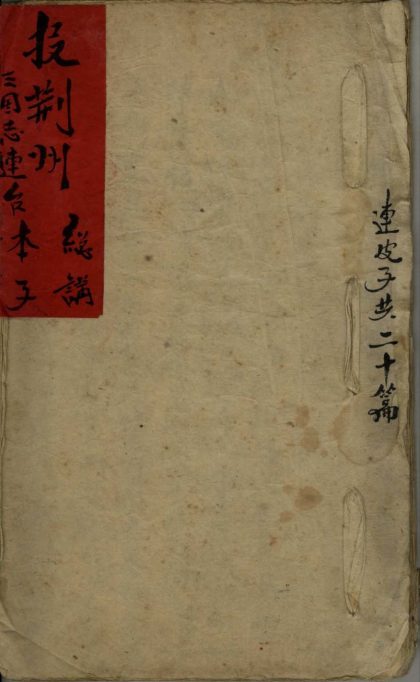 連皮子共二十篇
投荆州
総講
三国志連台本子